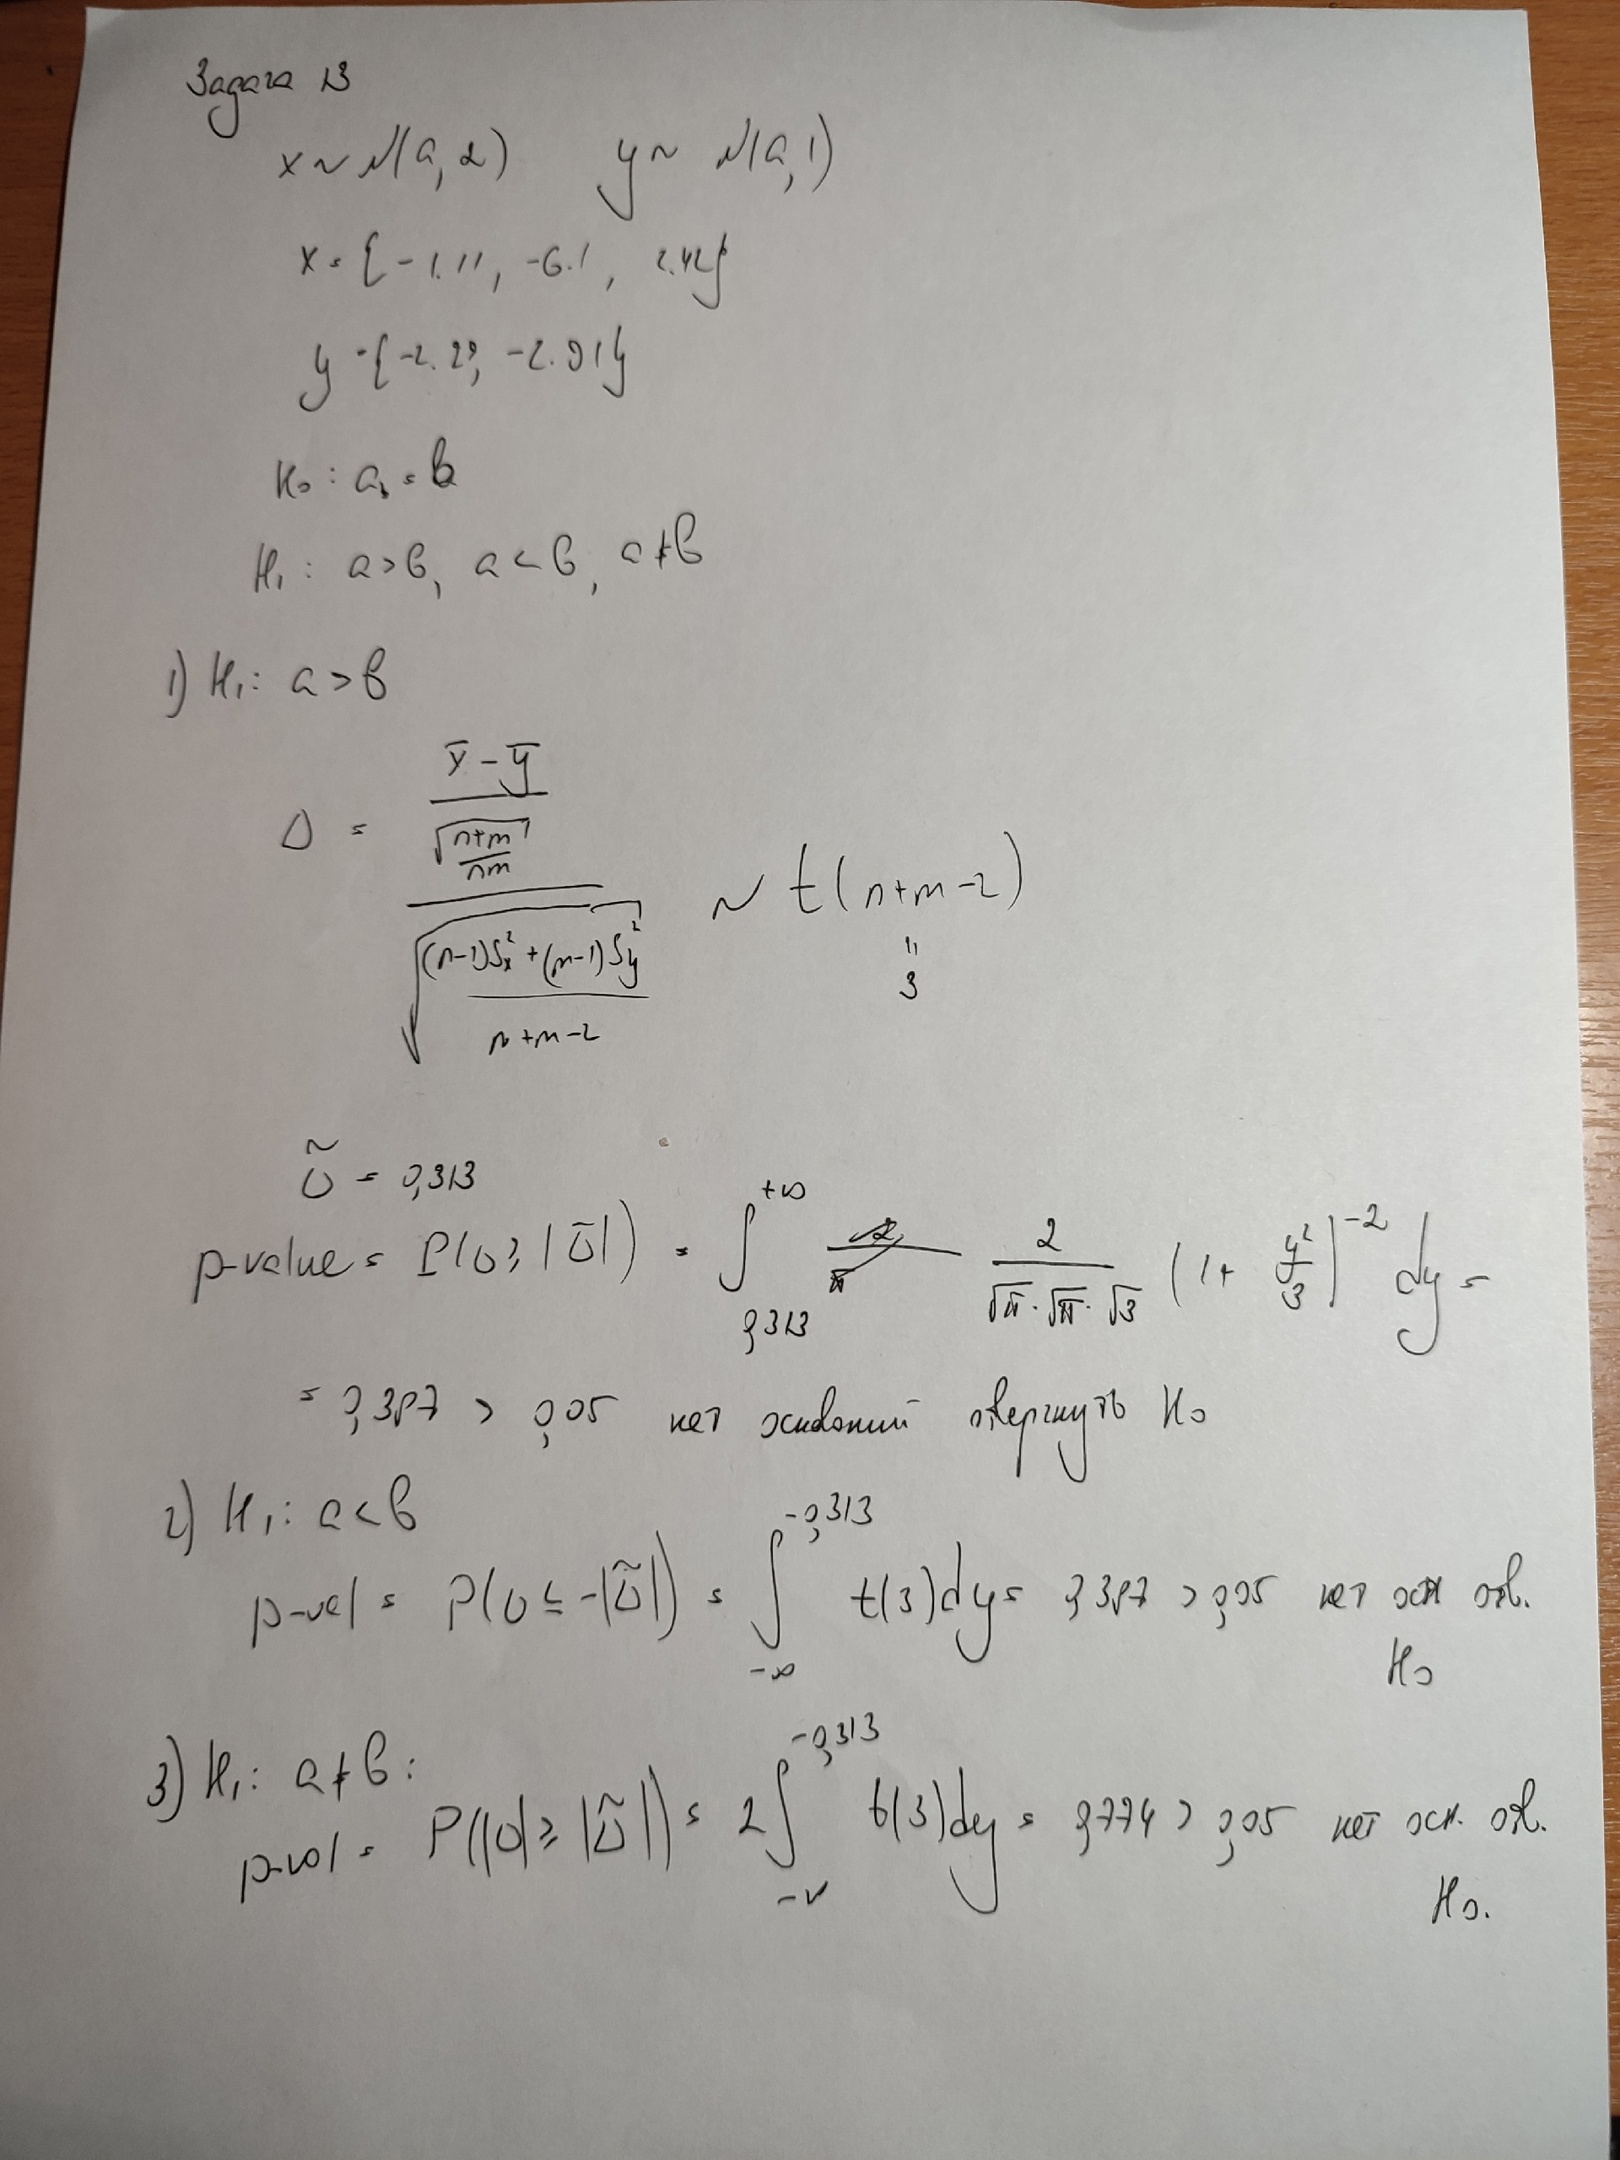 Задача 13
x ~ N(a, 2)   y ~ N(a, 1)
x = {-1.11, -6.1, 2.42}
y = {-2.29, -2.91}
H₀: a = b
H₁: a > b, a < b, a ≠ b
1) H₁: a > b
Δ = ((x̄ - ȳ) / √((n+m)/(nm))) / √(((n-1)Sx² + (m-1)Sy²)/(n+m-2)) ~ t(n+m-2)
"
3
Δ̃ = 0,313
p-value = P(Δ ≥ |Δ̃|) = ∫_{0,313}^{+∞} 2/(√π·√π·√3) (1 + y²/3)^{-2} dy =
= 0,387 > 0,05 нет оснований отвергнуть H₀
2) H₁: a < b
p-val = P(Δ ≤ -|Δ̃|) = ∫_{-∞}^{-0,313} t(3) dy = 0,387 > 0,05 нет осн отв.
H₀
3) H₁: a ≠ b:
p-val = P(|Δ| ≥ |Δ̃|) = 2∫_{-∞}^{-0,313} t(3) dy = 0,774 > 0,05 нет осн. отв.
H₀.